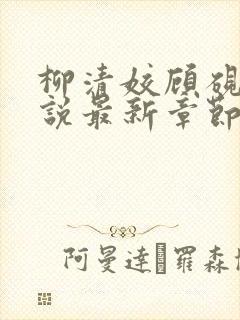 柳清姣顾砚
說最新章節
阿曼達·羅森